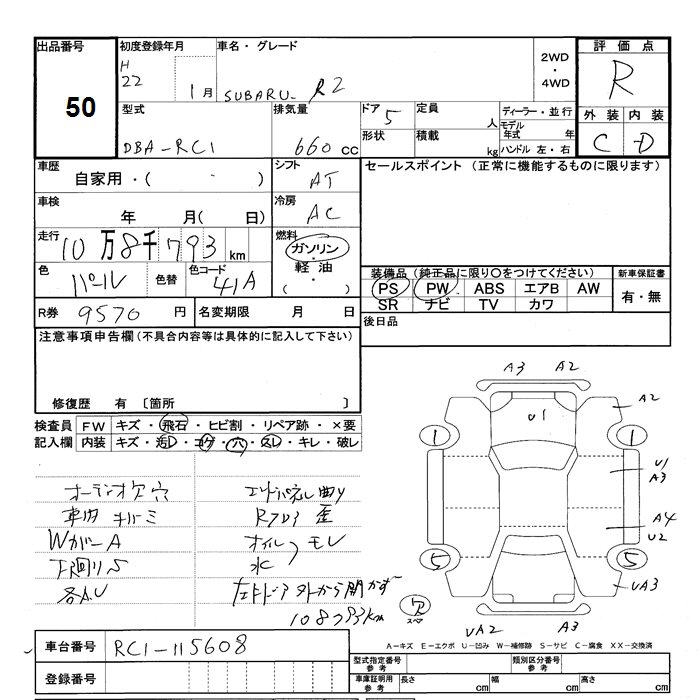 出品番号 初度登録年月 車名・グレード 2WD・4WD 評価点
50 H22 1月 SUBARU R2 R
型式 排気量 ドア 定員 ディーラー・並行 外装 内装
DBA-RC1 660cc 5 人 モデル年式 年 C D
形状 積載 kg ハンドル 左・右
車歴 シフト セールスポイント (正常に機能するものに限ります)
自家用・( ・ ) AT
車検 冷房
年 月( 日) AC
走行 燃料
10万8千793km ガソリン・軽油・( )
色 色替 色コード 装備品(純正品に限り〇をつけてください) 新車保証書
パール 41A PS PW ABS エアB AW 有・無
SR ナビ TV カワ
R券 9570円 名変期限 月 日 後日品
注意事項申告欄(不具合内容等は具体的に記入して下さい)
修復歴 有 〔箇所 〕
検査員 FW キズ・飛石・ヒビ割・リペア跡・×要
記入欄 内装 キズ・ヨゴレ・コゲ・穴・スレ・キレ・破レ
A3 A2
A2
U1
1 1
U1
A3
A4
U2
5 5
UA3
UA2 A3
ア
スペア
オーディオ欠穴 エンドパネル曲り
車内キバミ Rフロア歪
WカバーA オイル モレ
下廻りS 水
各A.U 左ドア外から開かず
108793km
A-キズ E-エクボ U-凹み W-補修跡 S-サビ C-腐食 XX-交換済
車台番号 RC1-115608
型式指定番号 参考 類別区分番号 参考
登録番号 車庫証明用 参考 長さ cm 幅 cm 高さ cm